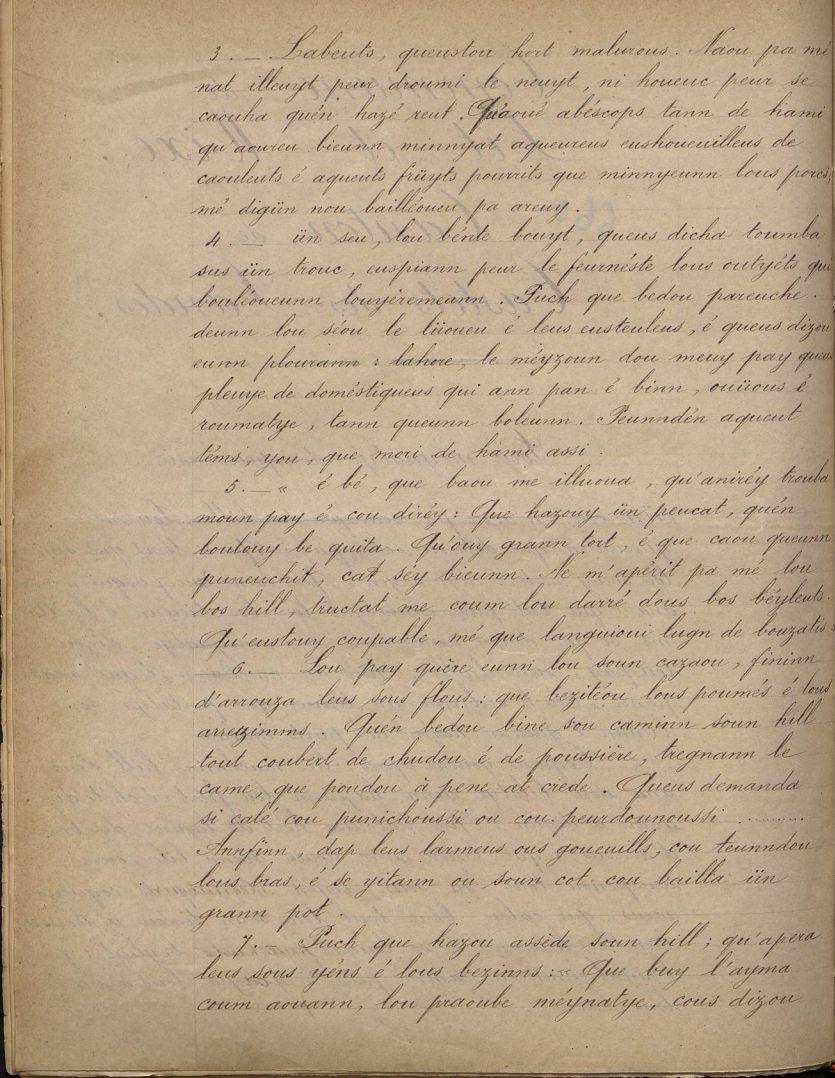 3. _ Labeuts, queustou hort malurous. Naou pa mé
nat illeuyt peur droumi le neuyt, ni houeuc peur se
caouha quén hazé reut. Qu'aoué abéscops tann de hami
qu'aoureu bieunn minnyat aqueureus eushoueuilleus de
caouleuts é aqueuts früyts pourrits que minnyeunn lous porcs,
mé digün nou bailléoueu pa areuy.
4. _ ün seu, lou bénte bouyt, queus dicha toumba
sus ün trouc, euspiann peur le feurnéste lous outyéts qui
bouléoueunn louyèremeunn. Puch que bedou pareuche.
deunn lou séou le lüoueu é leus eusteuleus, é queus dizou
euron plourann : lahore, le méyzoun dou meuy pay queus
pleuye de doméstiqueus qui ann pan é binn, ouüous é
roumatye, tann queunn boleunn. Peunndén aqueut
téms, you, que mori de hami assi.
5. _ « é bé, que baou me illuoua, qu'aniréy trouba
moun pay é cou diréy : Que hazouy ün peucat, quén
boulouy be quita. Qu'ouy grann tort, é que caou queunn
puneuchit, cat séy bieunn. Ne m'apérit pa mé lou
bos hill, tructat me coum lou darré dous bos béyleuts.
Qu'eustouy coupable, mé que languioui lugn de bouzatis »
6. _ Lou pay quère eunn lou soun cazaou, fininn
d'arrouza leus sous flous : que bezitéou lous poumés é lous
arreyzimms. Quén bedou bine sou caminn soun hill
tout coubert de chudou é de poussière, tregnann le
came, que poudou à pene at crede. Queus demanda
si calé cou punichoussi ou cou peurdounoussi .........
Annfinn, dap leus larmeus ous goueuills, cou teunndou
lous bras, é se yitann ou soun cot cou bailla ün
grann pot.
7. _ Puch que hazou assède soun hill ; qu'apera
leus sous yéns é lous bezinns : « Que buy l'ayma
coum aouann, lou praoube méynatye, cous dizou